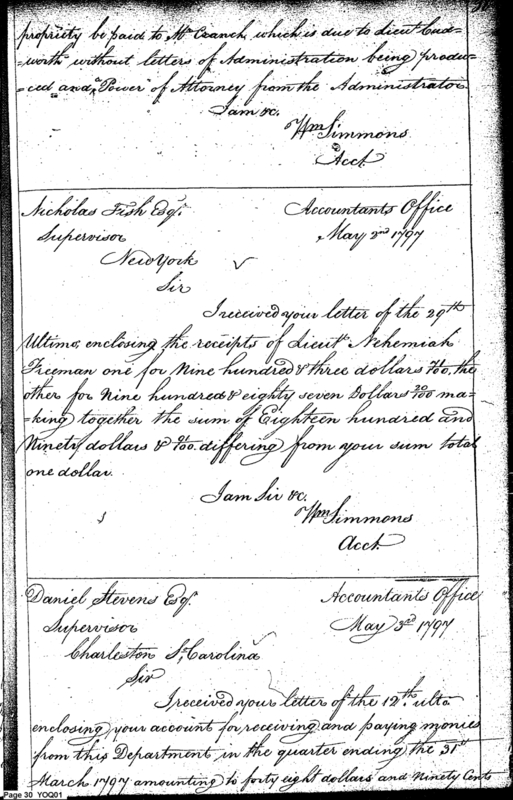 propriety be paid to Mr Cranch, which is due to Lieut Cud=
=worth without letters of Administration being produ=
=ced and a Power of Attorney from the Administrator
I am &c.
Wm Simmons
Acct.
Nicholas Fish Esqr. Accountants Office
Supervisor May 2nd 1797
New York
Sir
I received your letter of the 29th
Ultimo, enclosing the receipts of Lieut. Nehemiah
Freeman one for Nine hundred & three dollars 71/100, the
other for Nine hundred & eighty seven Dollars 20/100 ma=
=king together the sum of Eighteen hundred and
Ninety dollars & 91/100. differing from your sum total
one dollar.
I am Sir &c.
Wm Simmons
Acct.
Daniel Stevens Esqr. Accountants Office
Supervisor May 3rd 1797
Charleston So. Carolina
Sir
I received your letter of the 12th. ulto.
enclosing your account for receiving and paying monies
from this Department in the quarter ending the 31st
March 1797 amounting to forty eight dollars and Ninety Cents
Page 30 YOQ01